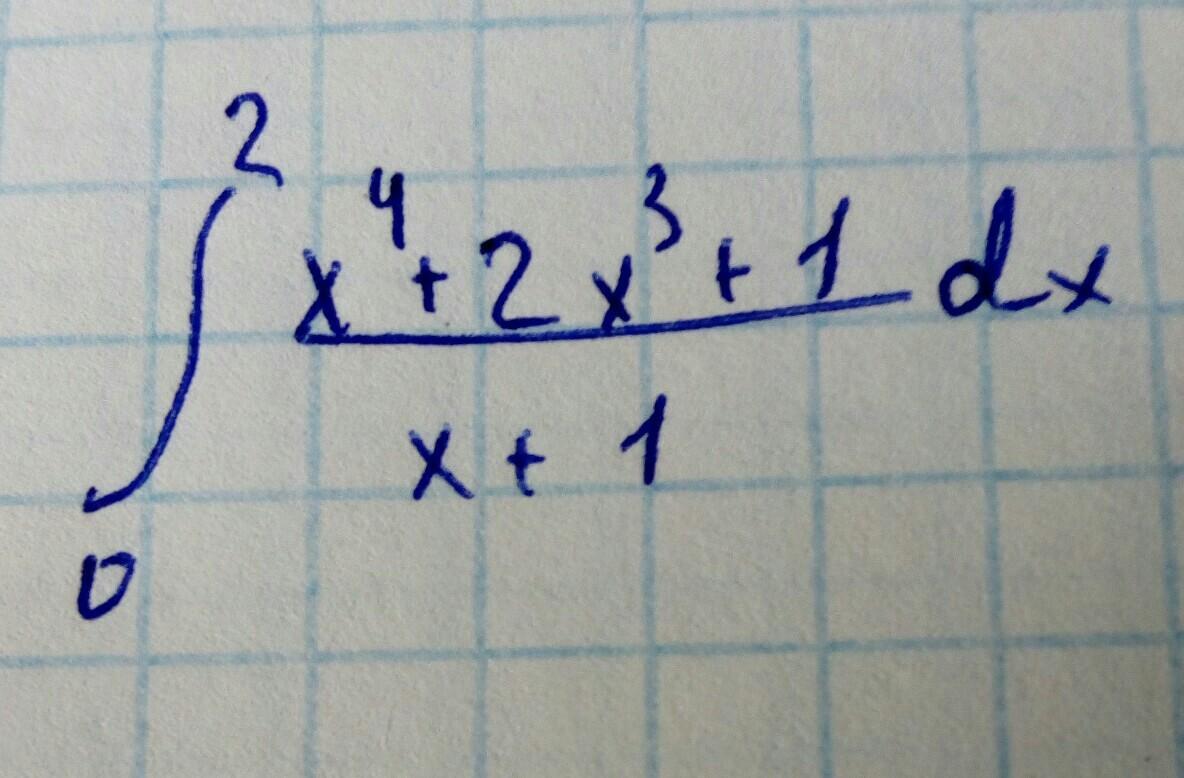 ∫₀² (x⁴ + 2x³ + 1)/(x + 1) dx